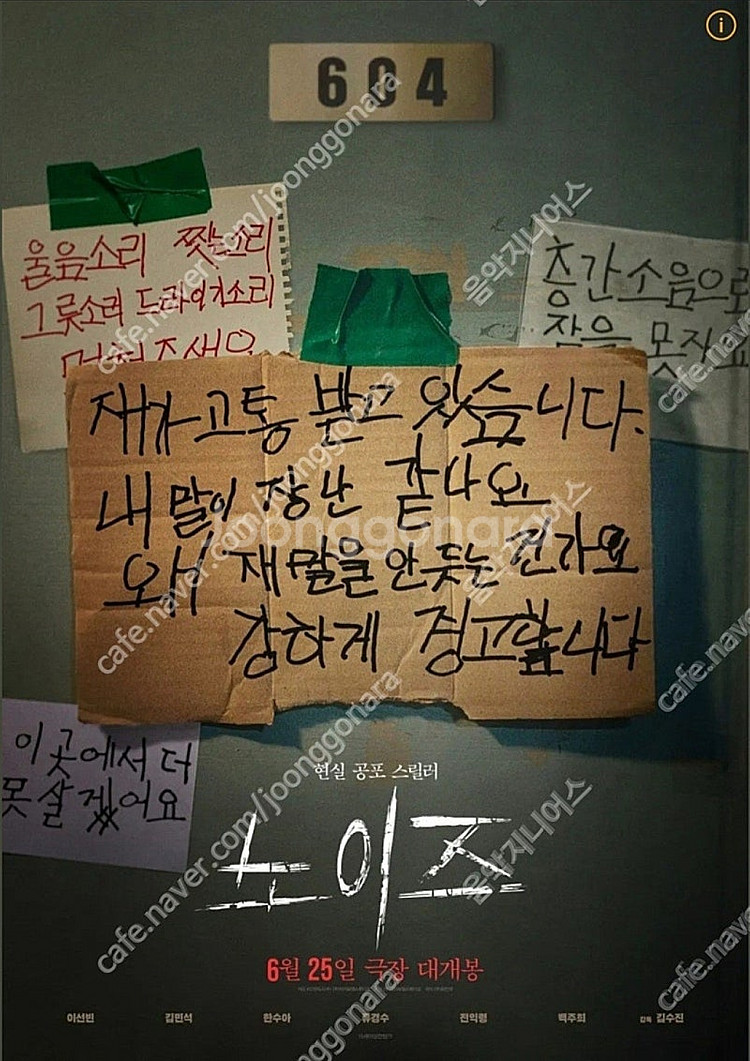 604
울음소리 찢는소리
그릇소리 드라이기소리
층간소음으로
잠을 못자요
재가 고통 받고 있습니다.
내 말이 장난 같나요
왜 재 말을 안 듯는 건가요
강하게 경고합니다
이곳에서 더
못살겠어요
현실 공포 스릴러
노이즈
6월 25일 극장 대개봉
이선빈 김민석 한수아 류경수 전익령 백주희 감독 김수진
cafe.naver.com/joonggonara
음악지니어스
joonggonara